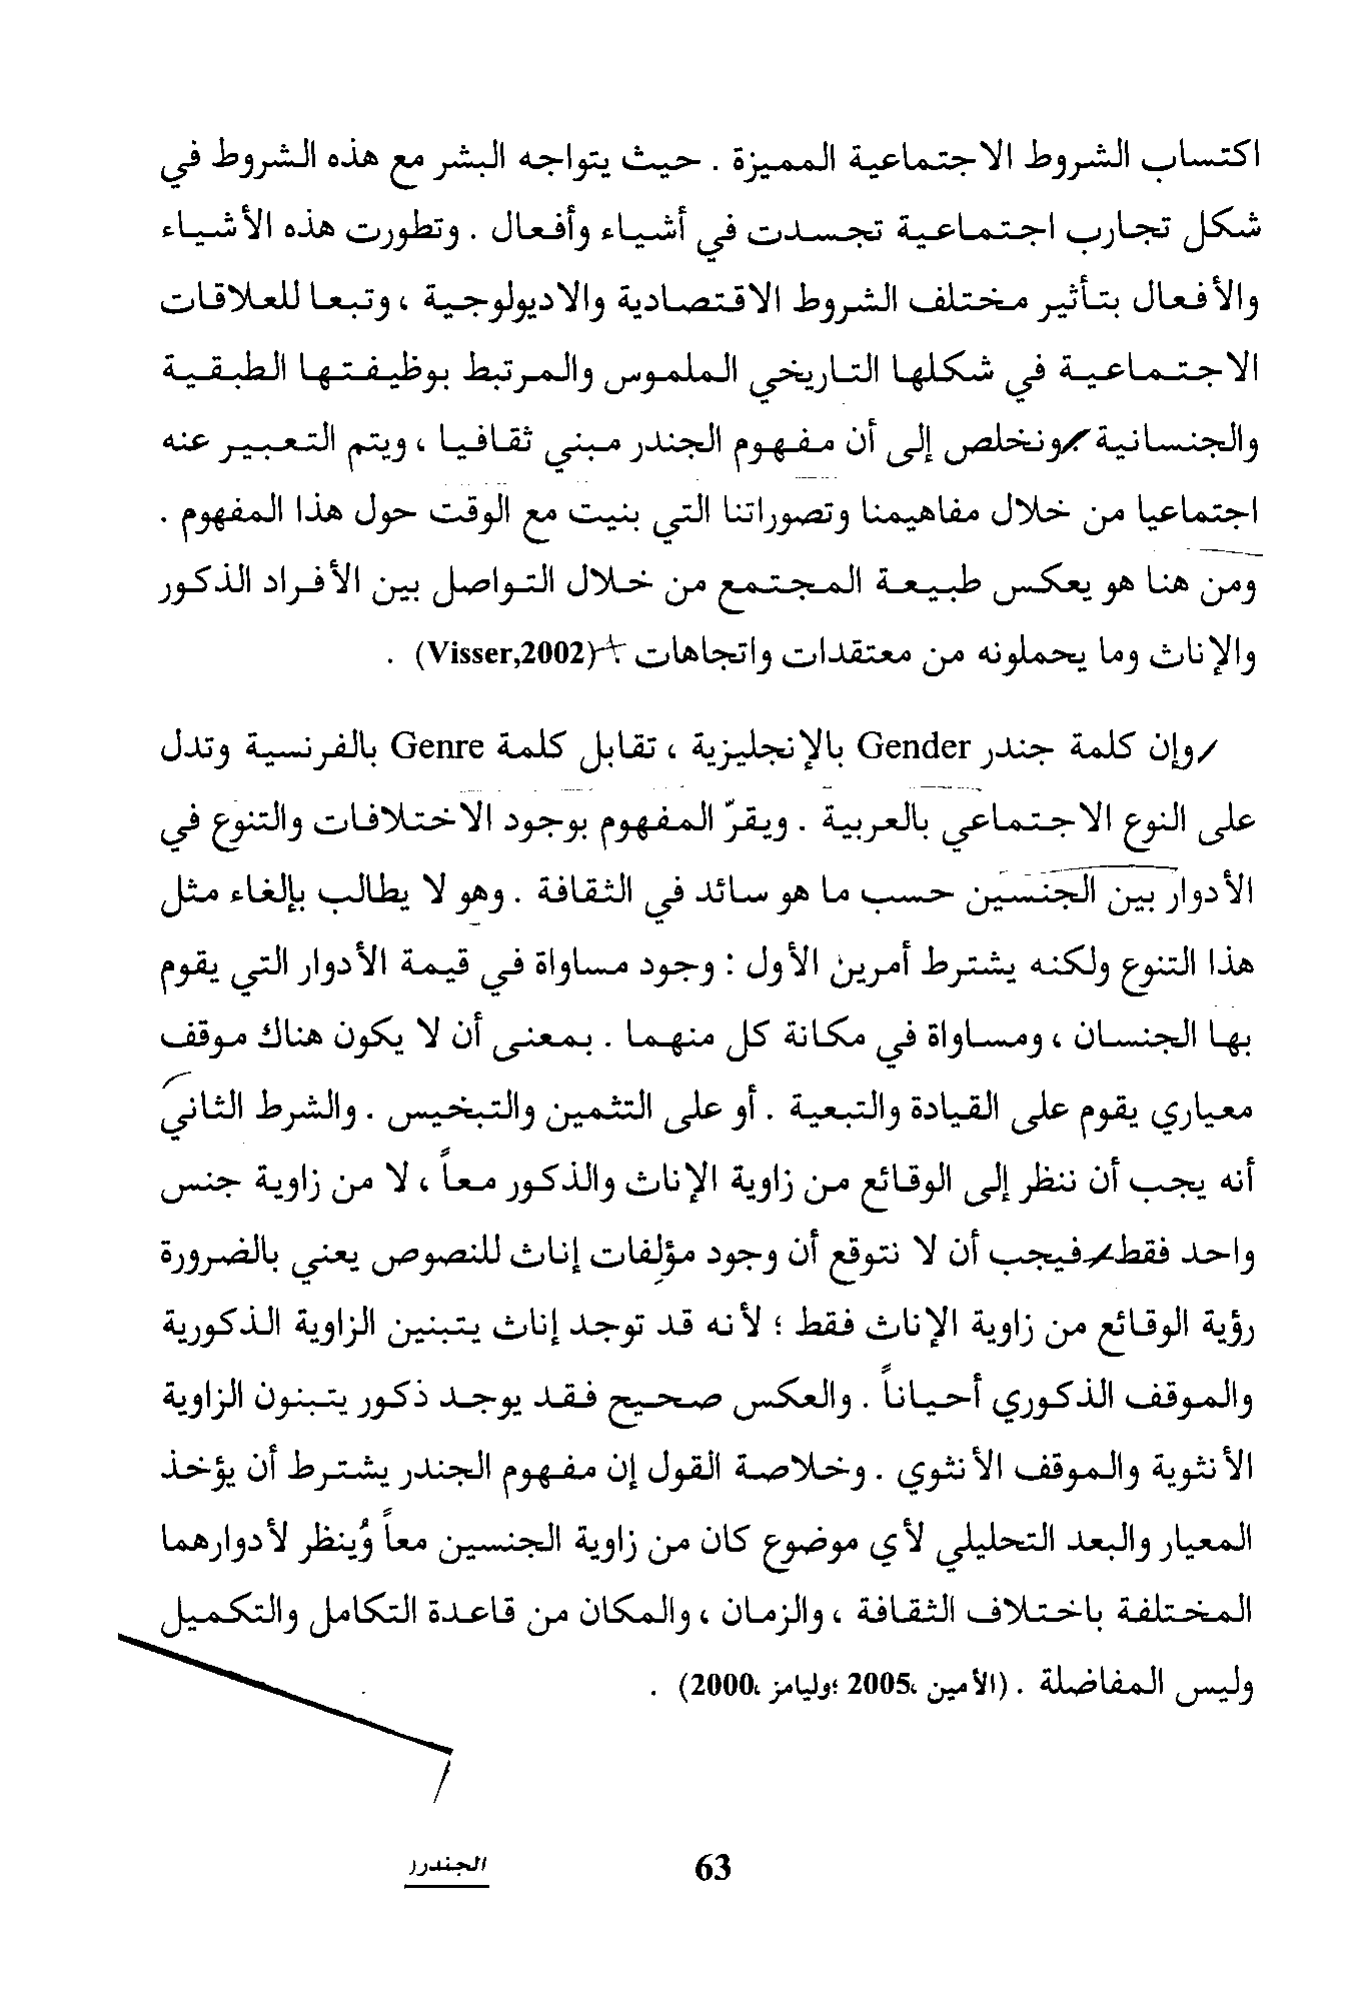 اكتساب الشروط الاجتماعية المميزة . حيث يتواجه البشر مع هذه الشروط في
شكل تجارب اجتماعية تجسدت في أشياء وأفعال . وتطورت هذه الأشياء
والأفعال بتأثير مختلف الشروط الاقتصادية والاديولوجية ، وتبعا للعلاقات
الاجتماعية في شكلها التاريخي الملموس والمرتبط بوظيفتها الطبقية
والجنسانية / ونخلص إلى أن مفهوم الجندر مبني ثقافيا ، ويتم التعبير عنه
اجتماعيا من خلال مفاهيمنا وتصوراتنا التي بنيت مع الوقت حول هذا المفهوم .
ومن هنا هو يعكس طبيعة المجتمع من خلال التواصل بين الأفراد الذكور
والإناث وما يحملونه من معتقدات واتجاهات . (Visser,2002) .
/ وإن كلمة جندر Gender بالإنجليزية ، تقابل كلمة Genre بالفرنسية وتدل
على النوع الاجتماعي بالعربية . ويقرّ المفهوم بوجود الاختلافات والتنوع في
الأدوار بين الجنسين حسب ما هو سائد في الثقافة . وهو لا يطالب بإلغاء مثل
هذا التنوع ولكنه يشترط أمرين الأول : وجود مساواة في قيمة الأدوار التي يقوم
بها الجنسان ، ومساواة في مكانة كل منهما . بمعنى أن لا يكون هناك موقف
معياري يقوم على القيادة والتبعية . أو على التثمين والتبخيس . والشرط الثاني
أنه يجب أن ننظر إلى الوقائع من زاوية الإناث والذكور معاً ، لا من زاوية جنس
واحد فقط / فيجب أن لا نتوقع أن وجود مؤلفات إناث للنصوص يعني بالضرورة
رؤية الوقائع من زاوية الإناث فقط ؛ لأنه قد توجد إناث يتبنين الزاوية الذكورية
والموقف الذكوري أحياناً . والعكس صحيح فقد يوجد ذكور يتبنون الزاوية
الأنثوية والموقف الأنثوي . وخلاصة القول إن مفهوم الجندر يشترط أن يؤخذ
المعيار والبعد التحليلي لأي موضوع كان من زاوية الجنسين معاً وُينظر لأدوارهما
المختلفة باختلاف الثقافة ، والزمان ، والمكان من قاعدة التكامل والتكميل
وليس المفاضلة . (الأمين ،2005 ؛وليامز ،2000) .
63
الجندر